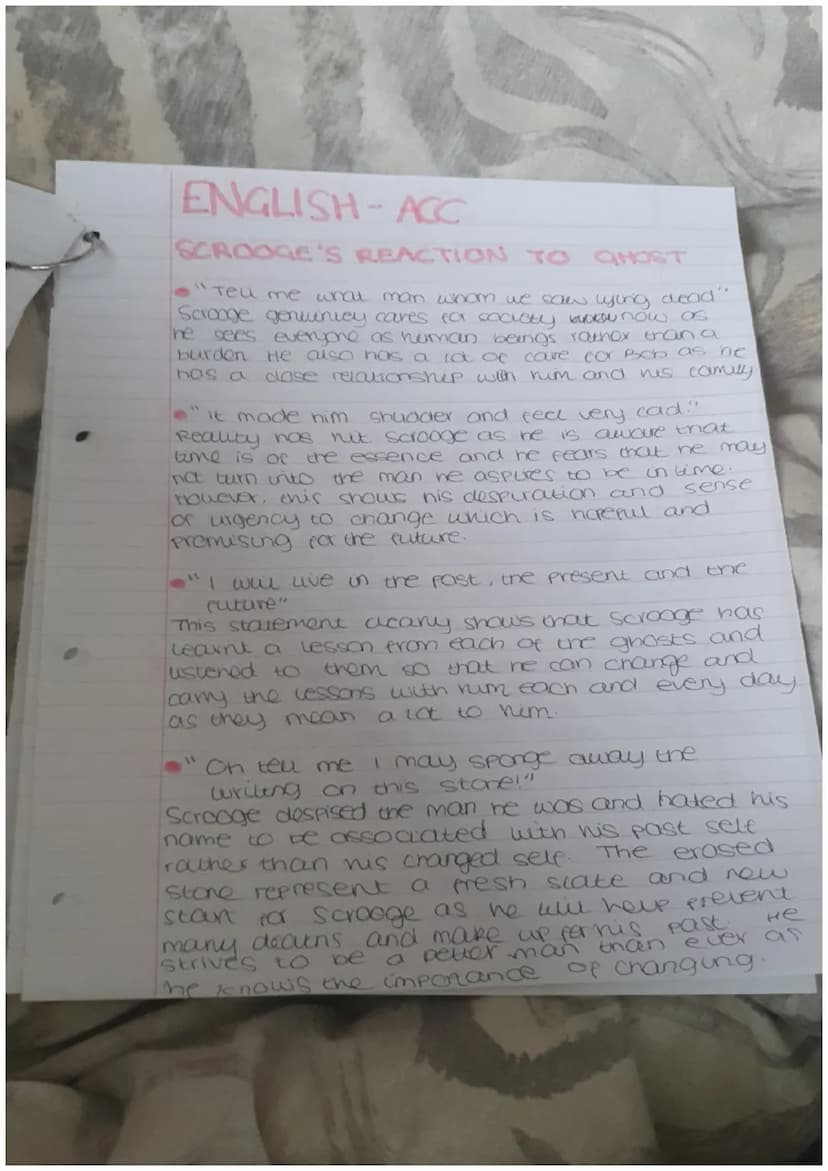 ENGLISH - ACC
SCROOGE'S REACTION TO GHOST
"Tell me what man whom we saw lying dead"
Scrooge genuinley cares for society now as
he sees everyone as human beings rather than a
burden. He also has a lot of care for Bob as he
has a close relationship with him and his family
"It made him shudder and feel very cad."
Reality has hit Scrooge as he is aware that
time is of the essence and he fears that he may
not turn into the man he aspires to be in time.
However, this shows his despiration and sense
of urgency to change which is hopeful and
promising for the future.
"I will live in the past, the present and the
future"
This statement clearly shows that Scrooge has
learnt a lesson from each of the ghosts and
listened to them so that he can change and
carry the lessons with him each and every day
as they mean a lot to him.
"Oh tell me I may sponge away the
writing on this stone!"
Scrooge despised the man he was and hated his
name to be associated with his past self
rather than his changed self. The erased
stone represent a fresh slate and new
start for Scrooge as he will help prevent
many deaths and make up for his past. He
strives to be a better man than ever as
he knows the importance of changing.